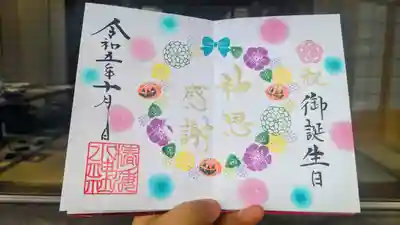 祝
御誕生日
神恩
感謝
令和五年十月日